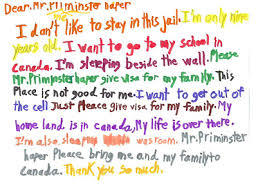 Dear.Mr.Priminster haper
I don't like to stay in this jail. I'm only nine
years old. I want to go to my school in
canada. I'm sleeping beside the wall. Please
Mr.Priminster haper give visa for my family. This
Place is not good for me. I want to get out of
the cell Just Pleace give visa for my family. My
home land is in canada, My life is over there.
I'm also sleeping washroom. Mr.Priminster
haper Pleace bring me and my family to
canada. Thank you so much.